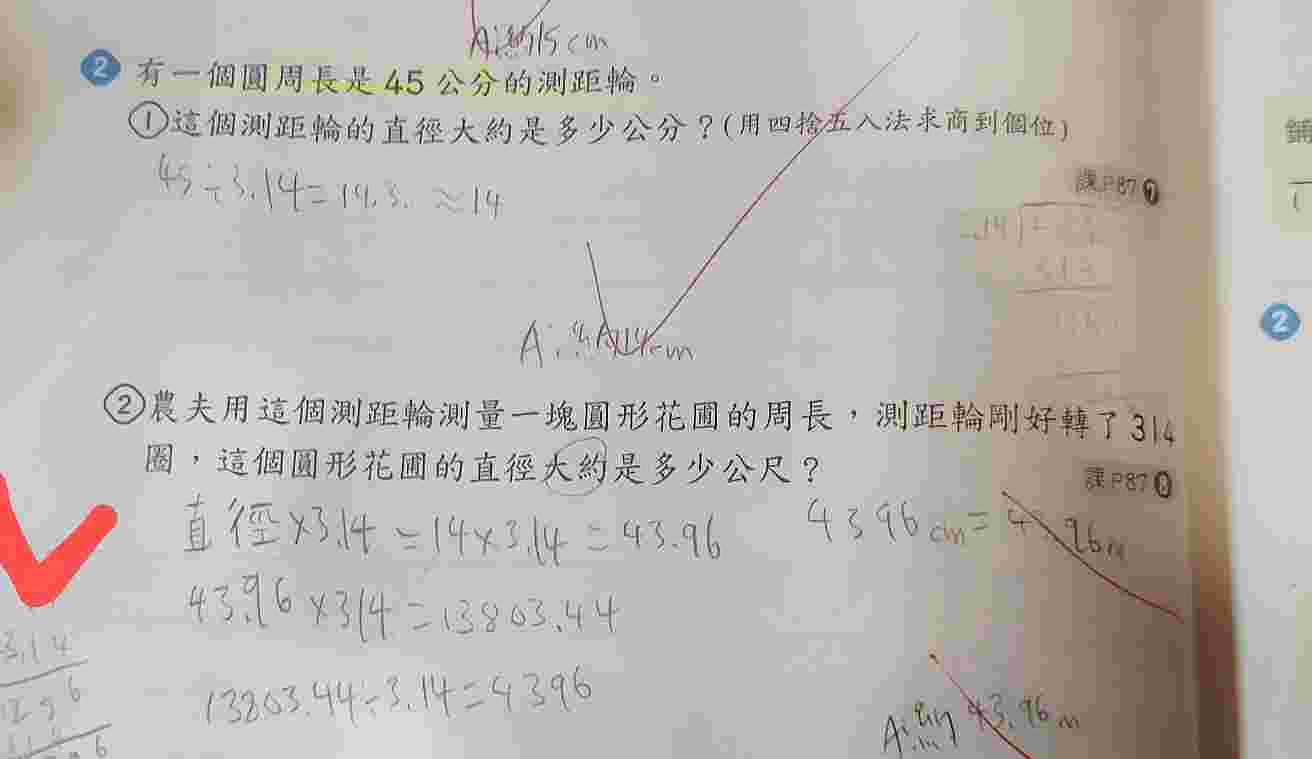 A:約15cm
2 有一個圓周長是45公分的測距輪。
①這個測距輪的直徑大約是多少公分？(用四捨五入法求商到個位)
45÷3.14=14.3. ≈14
課P87 7
A:約14cm
②農夫用這個測距輪測量一塊圓形花圃的周長，測距輪剛好轉了314
圈，這個圓形花圃的直徑大約是多少公尺？
課P87 8
直徑×3.14=14×3.14=43.96
4396cm=43.96m
43.96×314=13803.44
13803.44÷3.14=4396
A:約43.96m
3.14
2